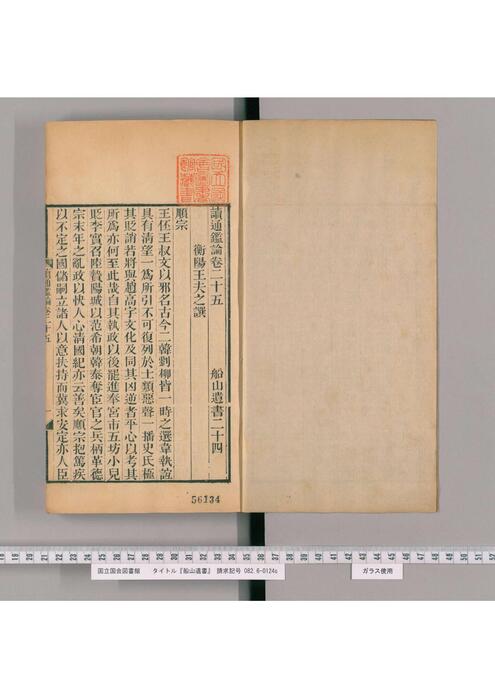 讀通鑑論卷二十五 船山遺書二十四
衡陽王夫之譔
順宗
王伾王叔文以邪名古今二韓劉柳皆一時之選韋執誼
具有清望一爲所引不可復列於士類惡聲一播史氏極
其貶誚若將與趙高宇文化及同其凶逆者平心以考其
所爲亦何至此哉自其執政以後罷進奉宮市五坊小兒
貶李實召陸贄陽城以范希朝韓泰奪宦官之兵柄革德
宗末年之亂政以快人心清國紀亦云善矣順宗抱篤疾
以不定之國儲嗣立諸人以意扶持而冀求安定亦人臣
56134
18 19 20 21 22 23 24 25 26 27 28 29 30 31 32 33 34 35 36 37 38 39 40 41 42 43 44 45 46 47 48 49 50 51 52
国立国会図書館 タイトル『船山遺書』 請求記号 082.6-0124s
ガラス使用